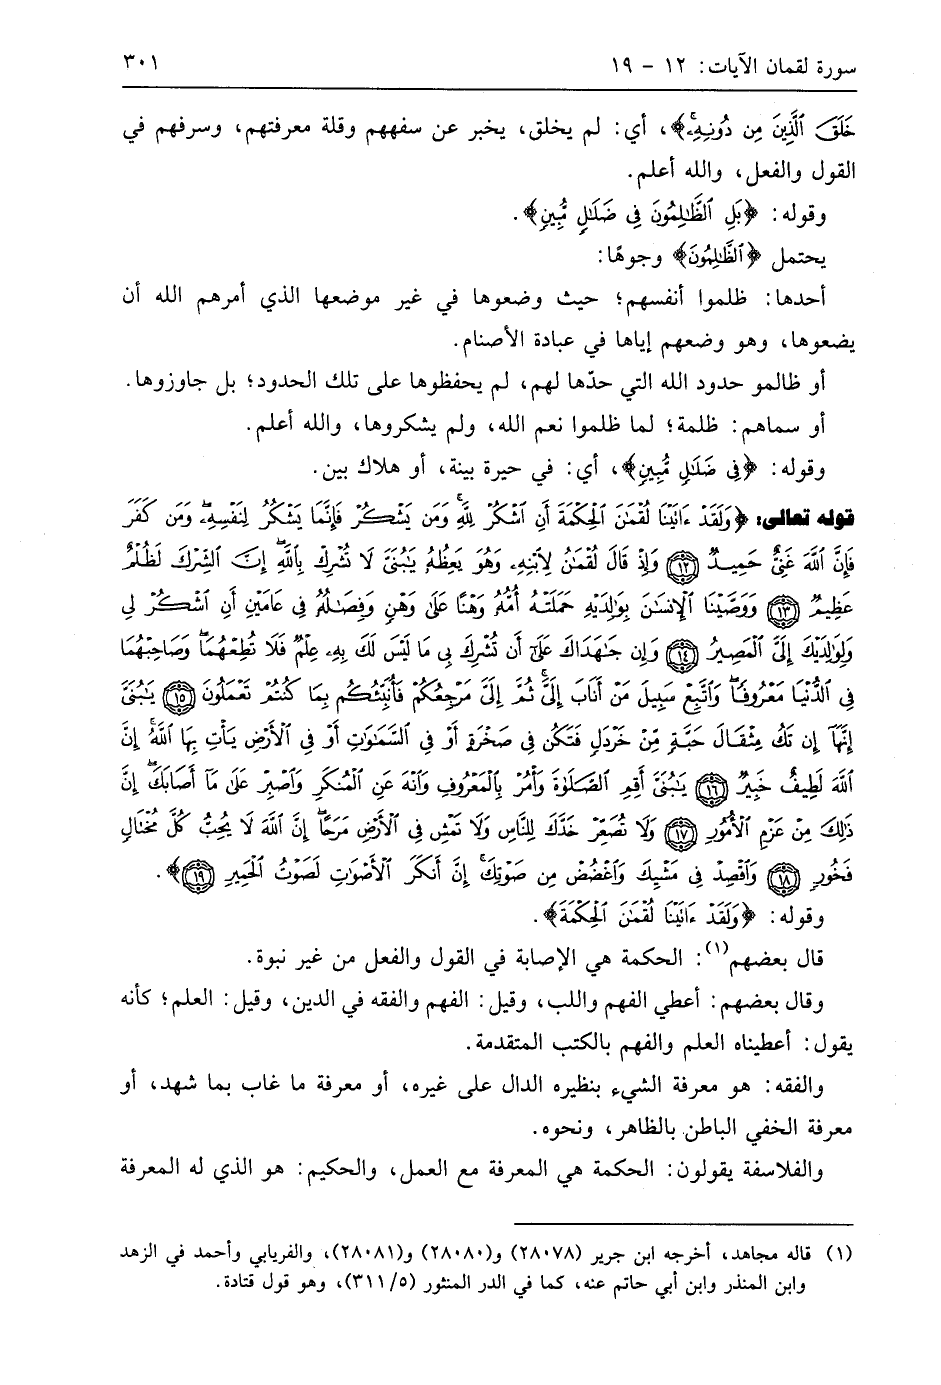 سورة لقمان الآيات: ١٢ - ١٩
٣٠١
خَلَقَ ٱلَّذِينَ مِن دُونِهِۦۚ﴾، أي: لم يخلق، يخبر عن سفههم وقلة معرفتهم، وسرفهم في
القول والفعل، والله أعلم.
وقوله: ﴿بَلِ ٱلظَّٰلِمُونَ فِى ضَلَٰلٖ مُّبِينٖ﴾.
يحتمل ﴿ٱلظَّٰلِمُونَ﴾ وجوهًا:
أحدها: ظلموا أنفسهم؛ حيث وضعوها في غير موضعها الذي أمرهم الله أن
يضعوها، وهو وضعهم إياها في عبادة الأصنام.
أو ظالمو حدود الله التي حدّها لهم، لم يحفظوها على تلك الحدود؛ بل جاوزوها.
أو سماهم: ظلمة؛ لما ظلموا نعم الله، ولم يشكروها، والله أعلم.
وقوله: ﴿فِى ضَلَٰلٖ مُّبِينٖ﴾، أي: في حيرة بينة، أو هلاك بين.
قوله تعالى: ﴿وَلَقَدْ ءَاتَيْنَا لُقْمَٰنَ ٱلْحِكْمَةَ أَنِ ٱشْكُرْ لِلَّهِۚ وَمَن يَشْكُرْ فَإِنَّمَا يَشْكُرُ لِنَفْسِهِۦۖ وَمَن كَفَرَ
فَإِنَّ ٱللَّهَ غَنِىٌّ حَمِيدٞ ١٢ وَإِذْ قَالَ لُقْمَٰنُ لِٱبْنِهِۦ وَهُوَ يَعِظُهُۥ يَٰبُنَىَّ لَا تُشْرِكْ بِٱللَّهِۖ إِنَّ ٱلشِّرْكَ لَظُلْمٌ
عَظِيمٞ ١٣ وَوَصَّيْنَا ٱلْإِنسَٰنَ بِوَٰلِدَيْهِ حَمَلَتْهُ أُمُّهُۥ وَهْنًا عَلَىٰ وَهْنٖ وَفِصَٰلُهُۥ فِى عَامَيْنِ أَنِ ٱشْكُرْ لِى
وَلِوَٰلِدَيْكَ إِلَىَّ ٱلْمَصِيرُ ١٤ وَإِن جَٰهَدَاكَ عَلَىٰٓ أَن تُشْرِكَ بِى مَا لَيْسَ لَكَ بِهِۦ عِلْمٞ فَلَا تُطِعْهُمَاۖ وَصَاحِبْهُمَا
فِى ٱلدُّنْيَا مَعْرُوفٗاۖ وَٱتَّبِعْ سَبِيلَ مَنْ أَنَابَ إِلَىَّۚ ثُمَّ إِلَىَّ مَرْجِعُكُمْ فَأُنَبِّئُكُم بِمَا كُنتُمْ تَعْمَلُونَ ١٥ يَٰبُنَىَّ
إِنَّهَآ إِن تَكُ مِثْقَالَ حَبَّةٖ مِّنْ خَرْدَلٖ فَتَكُن فِى صَخْرَةٍ أَوْ فِى ٱلسَّمَٰوَٰتِ أَوْ فِى ٱلْأَرْضِ يَأْتِ بِهَا ٱللَّهُۚ إِنَّ
ٱللَّهَ لَطِيفٌ خَبِيرٞ ١٦ يَٰبُنَىَّ أَقِمِ ٱلصَّلَوٰةَ وَأْمُرْ بِٱلْمَعْرُوفِ وَٱنْهَ عَنِ ٱلْمُنكَرِ وَٱصْبِرْ عَلَىٰ مَآ أَصَابَكَۖ إِنَّ
ذَٰلِكَ مِنْ عَزْمِ ٱلْأُمُورِ ١٧ وَلَا تُصَعِّرْ خَدَّكَ لِلنَّاسِ وَلَا تَمْشِ فِى ٱلْأَرْضِ مَرَحًاۖ إِنَّ ٱللَّهَ لَا يُحِبُّ كُلَّ مُخْتَالٖ
فَخُورٖ ١٨ وَٱقْصِدْ فِى مَشْيِكَ وَٱغْضُضْ مِن صَوْتِكَۚ إِنَّ أَنكَرَ ٱلْأَصْوَٰتِ لَصَوْتُ ٱلْحَمِيرِ ١٩﴾.
وقوله: ﴿وَلَقَدْ ءَاتَيْنَا لُقْمَٰنَ ٱلْحِكْمَةَ﴾.
قال بعضهم(١): الحكمة هي الإصابة في القول والفعل من غير نبوة.
وقال بعضهم: أعطي الفهم واللب، وقيل: الفهم والفقه في الدين، وقيل: العلم؛ كأنه
يقول: أعطيناه العلم والفهم بالكتب المتقدمة.
والفقه: هو معرفة الشيء بنظيره الدال على غيره، أو معرفة ما غاب بما شهد، أو
معرفة الخفي الباطن بالظاهر، ونحوه.
والفلاسفة يقولون: الحكمة هي المعرفة مع العمل، والحكيم: هو الذي له المعرفة
(١) قاله مجاهد، أخرجه ابن جرير (٢٨٠٧٨) و(٢٨٠٨٠) و(٢٨٠٨١)، والفريابي وأحمد في الزهد
وابن المنذر وابن أبي حاتم عنه، كما في الدر المنثور (٣١١/٥)، وهو قول قتادة.